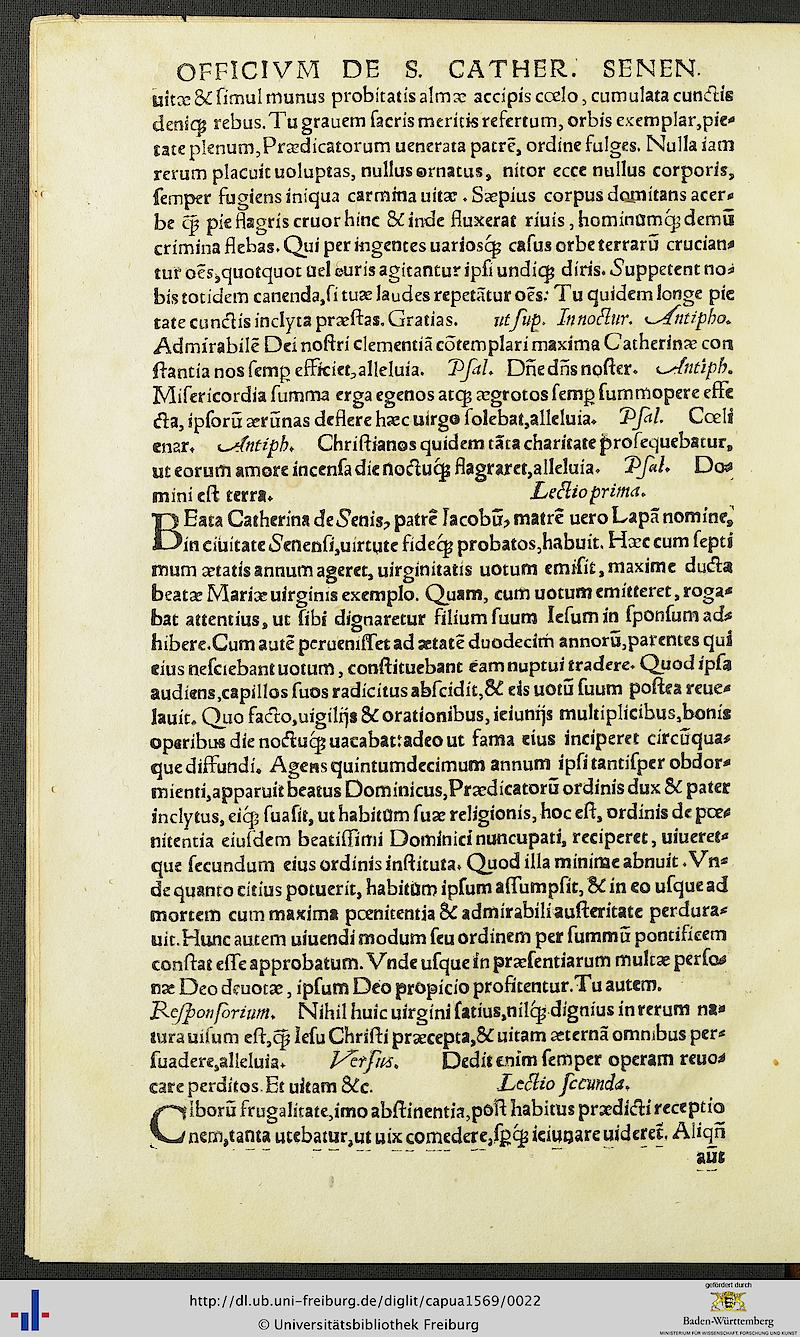 OFFICIVM DE S. CATHER. SENEN.
uitæ & ſimul munus probitatis almæ accipis cœlo, cumulata cunctis
deniq́; rebus. Tu grauem ſacris meritis refertum, orbis exemplar, pie-
tate plenum, Prædicatorum uenerata patrē, ordine fulges. Nulla iam
rerum placuit uoluptas, nullus ornatus, nitor ecce nullus corporis,
ſemper fugiens iniqua carmina uitæ. Sæpius corpus domitans acer-
be q̃; pie flagris cruor hinc & inde fluxerat riuis, hominumq́; demū
crimina flebas. Qui per ingentes uariosq́; caſus orbe terrarū crucian-
tur oēs, quotquot uel curis agitantur ipſi undiq́; diris. Suppetent no-
bis totidem canenda, ſi tuæ laudes repetātur oēs: Tu quidem longe pie
tate cunctis inclyta præſtas. Gratias. ut ſup. In noctur. Antipho.
Admirabilē Dei noſtri clementiā cōtemplari maxima Catherinæ con
ſtantia nos ſemp efficiet, alleluia. Pſal. Dñe dñs noſter. Antiph.
Miſericordia ſumma erga egenos atq́; ægrotos ſemp ſummopere effe
cta, ipſorū ærūnas deflere hæc uirgo ſolebat, alleluia. Pſal. Cœli
enar. Antiph. Chriſtianos quidem tāta charitate proſequebatur,
ut eorum amore incenſa die noctuq́; flagraret, alleluia. Pſal. Do-
mini eſt terra. Lectio prima.
BEata Catherina de Senis, patrē Iacobū, matrē uero Lapā nomine,
in ciuitate Senenſi, uirtute fideq́; probatos, habuit. Hæc cum ſepti
mum ætatis annum ageret, uirginitatis uotum emiſit, maxime ducta
beatæ Mariæ uirginis exemplo. Quam, cum uotum emitteret, roga-
bat attentius, ut ſibi dignaretur filium ſuum Ieſum in ſponſum ad-
hibere. Cum autē perueniſſet ad ætatē duodecim annorū, parentes qui
eius neſciebant uotum, conſtituebant eam nuptui tradere. Quod ipſa
audiens, capillos ſuos radicitus abſcidit, & eis uotū ſuum poſtea reue-
lauit. Quo facto, uigilijs & orationibus, ieiunijs multiplicibus, bonis
operibus die noctuq́; uacabat: adeo ut fama eius inciperet circūqua-
que diffundi. Agens quintumdecimum annum ipſi tantiſper obdor-
mienti, apparuit beatus Dominicus, Prædicatorū ordinis dux & pater
inclytus, eiq́; ſuaſit, ut habitum ſuæ religionis, hoc eſt, ordinis de pœ-
nitentia eiuſdem beatiſſimi Dominici nuncupati, reciperet, uiueret-
que ſecundum eius ordinis inſtituta. Quod illa minime abnuit. Vn-
de quanto citius potuerit, habitum ipſum aſſumpſit, & in eo uſque ad
mortem cum maxima pœnitentia & admirabili auſteritate perdura-
uit. Hunc autem uiuendi modum ſeu ordinem per ſummū pontificem
conſtat eſſe approbatum. Vnde uſque in præſentiarum multæ perſo-
næ Deo deuotæ, ipſum Deo propicio profitentur. Tu autem.
Reſponſorium. Nihil huic uirgini ſatius, nilq́; dignius in rerum na-
tura uiſum eſt, q̃; Ieſu Chriſti præcepta, & uitam æternā omnibus per-
ſuadere, alleluia. Verſus. Dedit enim ſemper operam reuo-
care perditos. Et uitam &c. Lectio ſecunda.
CIborū frugalitate, imo abſtinentia, poſt habitus prædicti receptio
nem, tanta utebatur, ut uix comedere, ſp̱q́; ieiunare uideret̃. Aliqñ
aūt
http://dl.ub.uni-freiburg.de/diglit/capua1569/0022
© Universitätsbibliothek Freiburg
gefördert durch
Baden-Württemberg
MINISTERIUM FÜR WISSENSCHAFT, FORSCHUNG UND KUNST